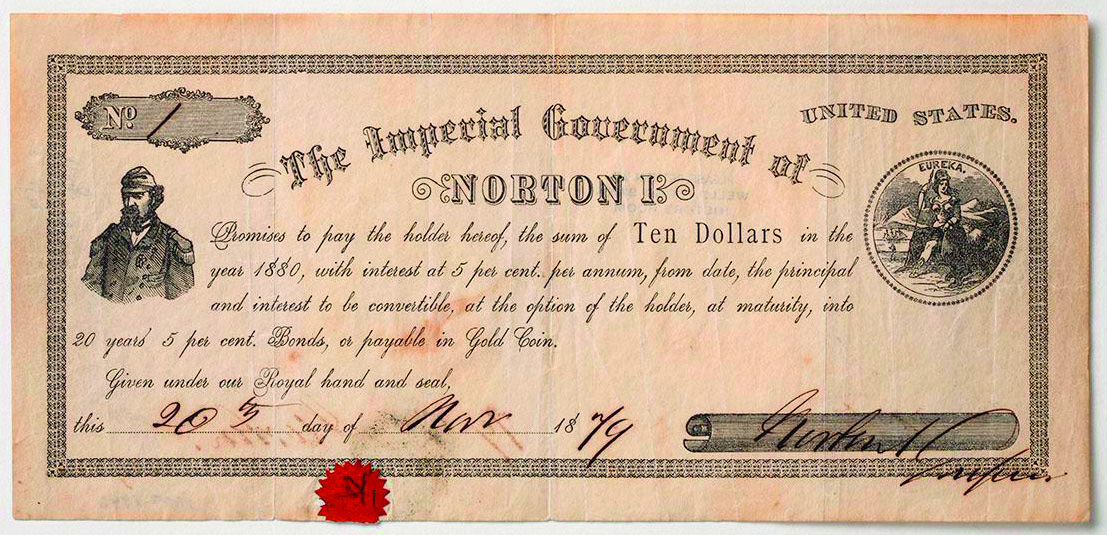 Nº 1
UNITED STATES.
EUREKA.
The Imperial Government of
NORTON I.
Promises to pay the holder hereof, the sum of Ten Dollars in the
year 1880, with interest at 5 per cent. per annum, from date, the principal
and interest to be convertible, at the option of the holder, at maturity, into
20 years' 5 per cent. Bonds, or payable in Gold Coin.
Given under our Royal hand and seal,
this 20th day of Nov 1879
Norton I